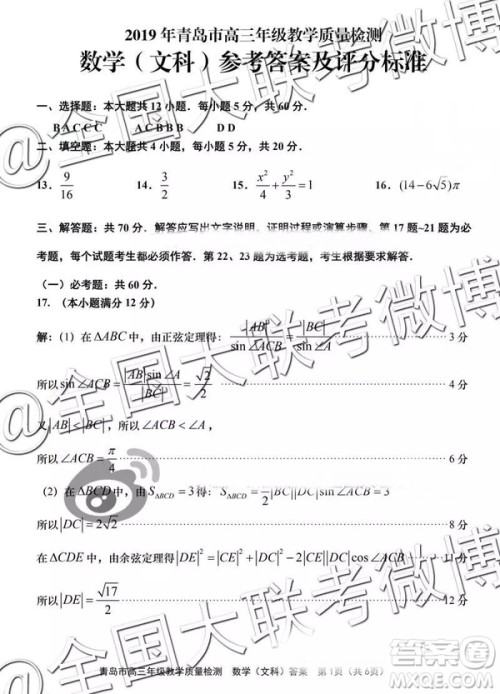 2019 年青岛市高三年级教学质量检测
数学（文科）参考答案及评分标准
一、选择题：本大题共 12 小题．每小题 5 分，共 60 分．
B A C C C　A C B B B　D D
二、填空题：本大题共 4 小题，每小题 5 分，共 20 分．
13．9/16　14．3/2　15．x²/4 + y²/3 = 1　16．(14−6√5)π
三、解答题：共 70 分．解答应写出文字说明、证明过程或演算步骤．第 17 题~21 题为必
考题，每个试题考生都必须作答．第 22、23 题为选考题，考生根据要求解答．
（一）必考题：共 60 分．
17．（本小题满分 12 分）
解：(1) 在 ΔABC 中，由正弦定理得：|AB|/sin∠ACB = |BC|/sin∠A 3 分
所以 sin∠ACB = |AB|sin∠A/|BC| = √2/2 4 分
又 |AB| < |BC|，所以 ∠ACB < ∠A，
所以 ∠ACB = π/4 6 分
(2) 在 ΔBCD 中，由 S_ΔBCD = 3 得：S_ΔBCD = 1/2|BC||DC|sin∠ACB = 3
所以 |DC| = 2√2 8 分
在 ΔCDE 中，由余弦定理得 |DE|² = |CE|² + |DC|² − 2|CE||DC|cos∠ACB 11 分
所以 |DE| = √17/2 12 分
青岛市高三年级教学质量检测　数学（文科）答案　第 1页（共 6页）
@全国大联考微博